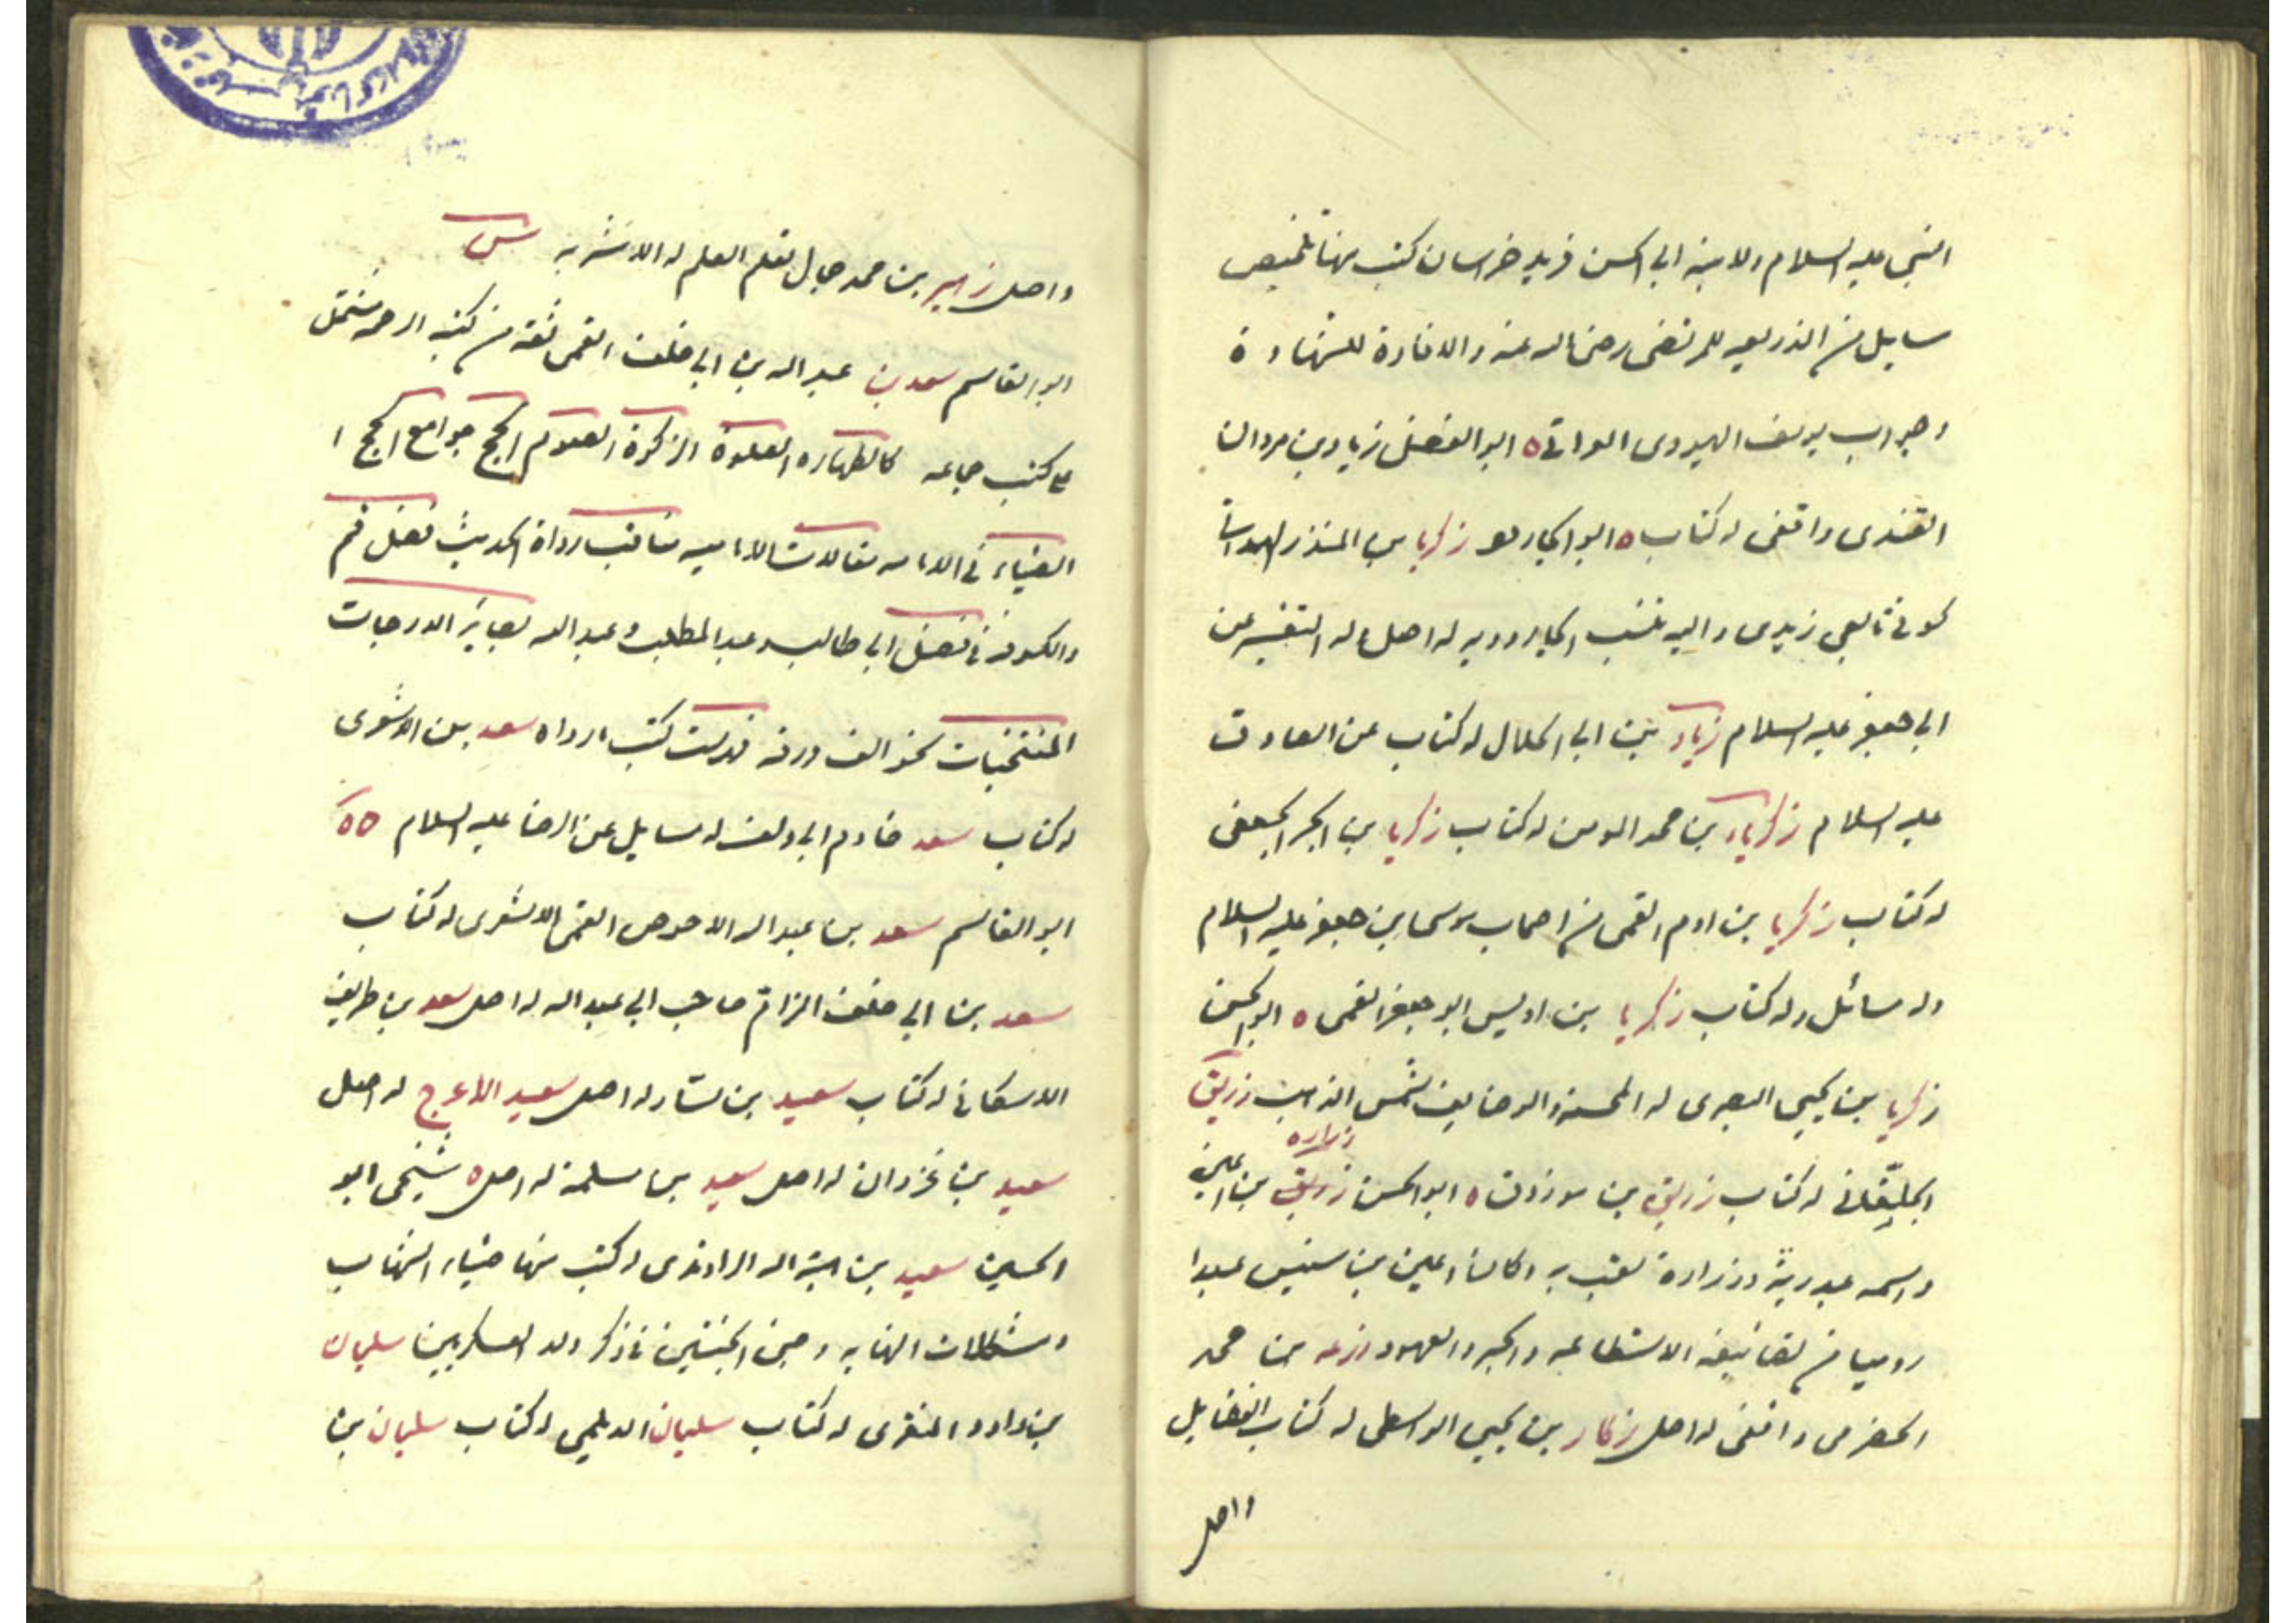 النبي عليه السلام ولابنه ابي الحسن فريد خراسان كتب منها تلخيص
مسايل من الذريعه للمرتضى رضى الله عنه والافادة للشهادة
وجواب يوسف اليهودى العراقي ه ابو الفضل زياد بن مروان
القندى واقفى له كتاب ه ابو الجارود زكريا بن المنذر الهمداني
كوفى تابعى زيدى واليه تنسب الجاروديه له اصل وله التفسير عن
ابي جعفر عليه السلام زياد بن ابي الحلال له كتاب عن الصادق
عليه السلام زكريا بن محمد المومن له كتاب زكريا بن الحر الجعفى
له كتاب زكريا بن ادم القمى من اصحاب موسى بن جعفر عليه السلام
وله مسائل وله كتاب زكريا بن ادريس ابو جعفر القمى ه ابو الحسن
زكريا بن يحيى البصرى له المحسنة والوضايف شمس الذهب زريق
زراره
الخلقانى له كتاب زريق بن مرزوق ه ابو الحسن زريق بن اعين
واسمه عبد ربه وزرارة لقب به وكان اعين بن سنسن عبدا
روميا من تصانيفه الاستطاعه والجبر والعهود زرعه بن محمد
الحضرمى واقفى له اصل زكار بن يحيى الواسطى له كتاب الفضايل
واصل
واصل زهير بن محمد جبال تعلم العلم له الاشربه س
ابو القاسم سعد بن عبد الله بن ابي خلف القمى ثقه من كتبه الرحمه مشتمل
على كتب جماعه كالطهاره الصلوة الزكوة الصوم الحج جوامع الحج ا
الضياء في الامامه مقالات الاماميه مناقب رواة الحديث فضل قم
والكوفه في فضل ابي طالب وعبد المطلب وعبد الله بصاير الدرجات
المنتخبات نحو الف ورقه فهرست كتب ما رواه سعد بن الاشعرى
له كتاب سعد خادم ابي دلف له مسايل عن الرضا عليه السلام ه ه
ابو القاسم سعد بن عبد الله الاحوص القمى الاشعرى له كتاب
سعد بن ابي خلف الزام صاحب ابي عبد الله له اصل سعد بن طريف
الاسكافى له كتاب سعيد بن يسار له اصل سعيد الاعرج له اصل
سعيد بن غزوان له اصل سعيد بن مسلمة له اصل ه شيخى ابو
الحسين سعيد بن هبة الله الراوندى له كتب منها ضياء الشهاب
ومشكلات النهايه وجنى الجنتين في ذكر ولد العسكريين سليمان
بن داود المنقرى له كتاب سليمان الديلمى له كتاب سليمان بن